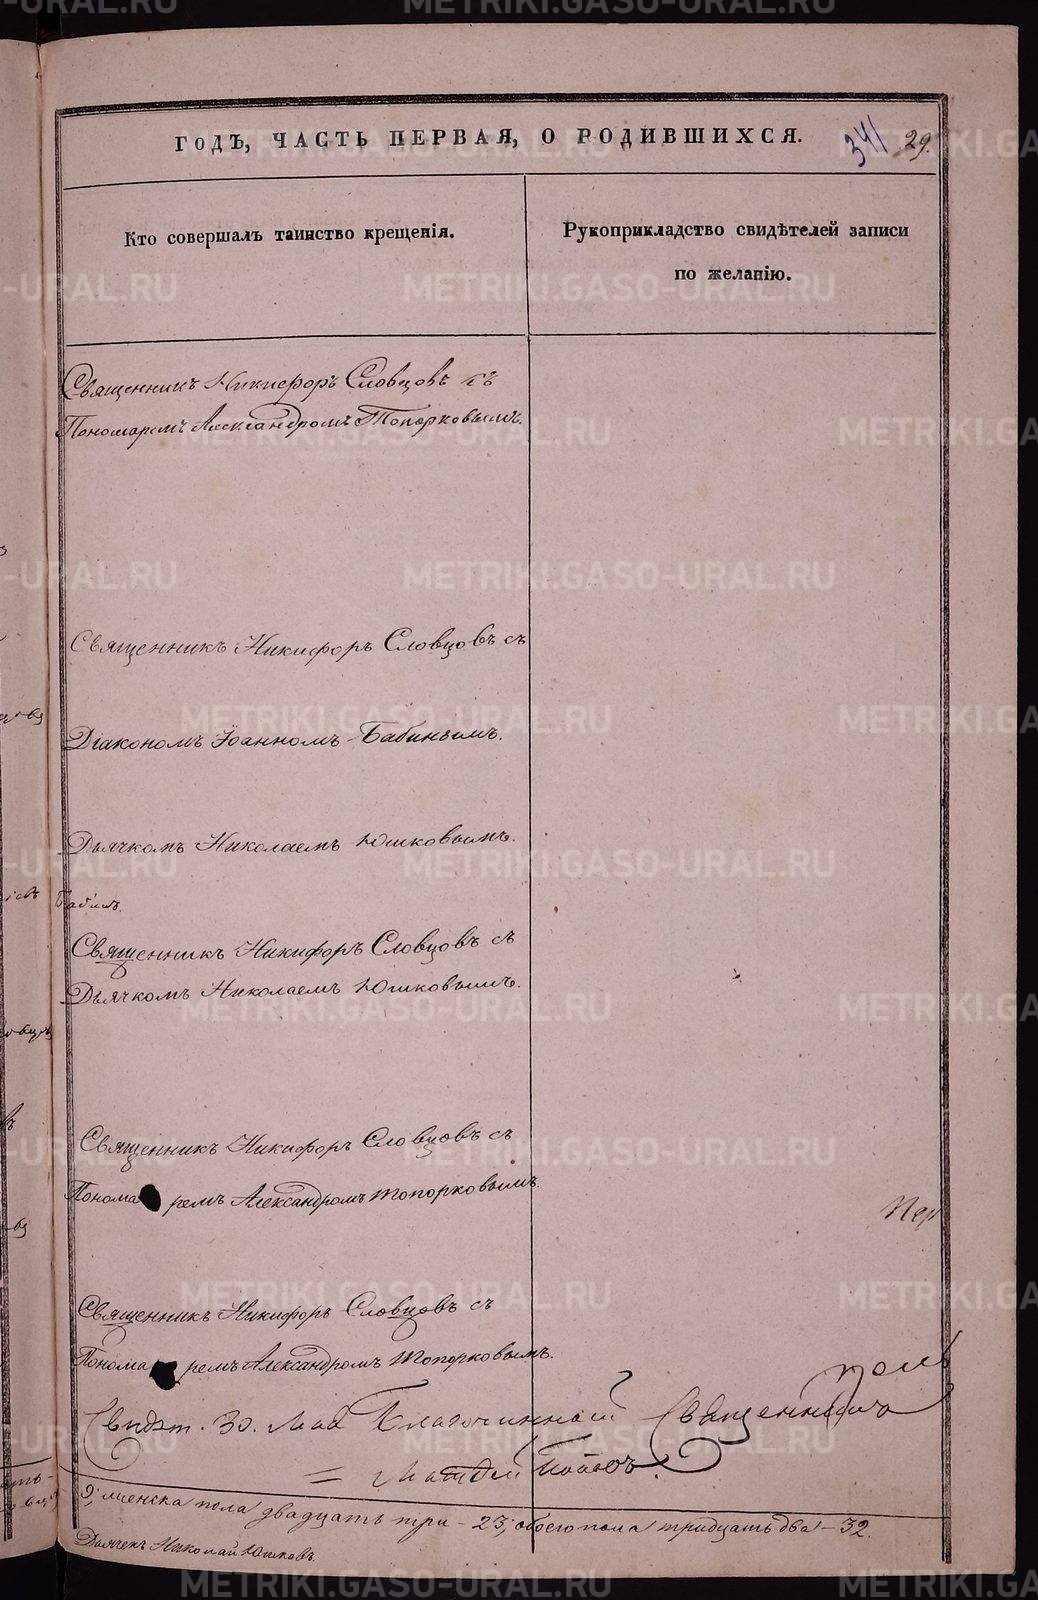 ГОДЪ, ЧАСТЬ ПЕРВАЯ, О РОДИВШИХСЯ.
341 29.
Кто совершалъ таинство крещенія.
Рукоприкладство свидѣтелей записи
по желанію.
Священникъ Никифоръ Словцовъ съ
Пономаремъ Александромъ Топорковымъ.
Священникъ Никифоръ Словцовъ съ
Діакономъ Іоанномъ Бабинымъ.
Дьячкомъ Николаемъ Юшковымъ.
Священникъ Никифоръ Словцовъ съ
Дьячкомъ Николаемъ Юшковымъ.
Священникъ Никифоръ Словцовъ съ
Пономаремъ Александромъ Топорковымъ.
Священникъ Никифоръ Словцовъ съ
Пономаремъ Александромъ Топорковымъ.
30. Мая Благочинный Священникъ
Попов
9; женска пола двадцать три - 23; обоего пола тридцать два - 32.
Дьячекъ Николай Юшковъ.
METRIKI.GASO-URAL.RU